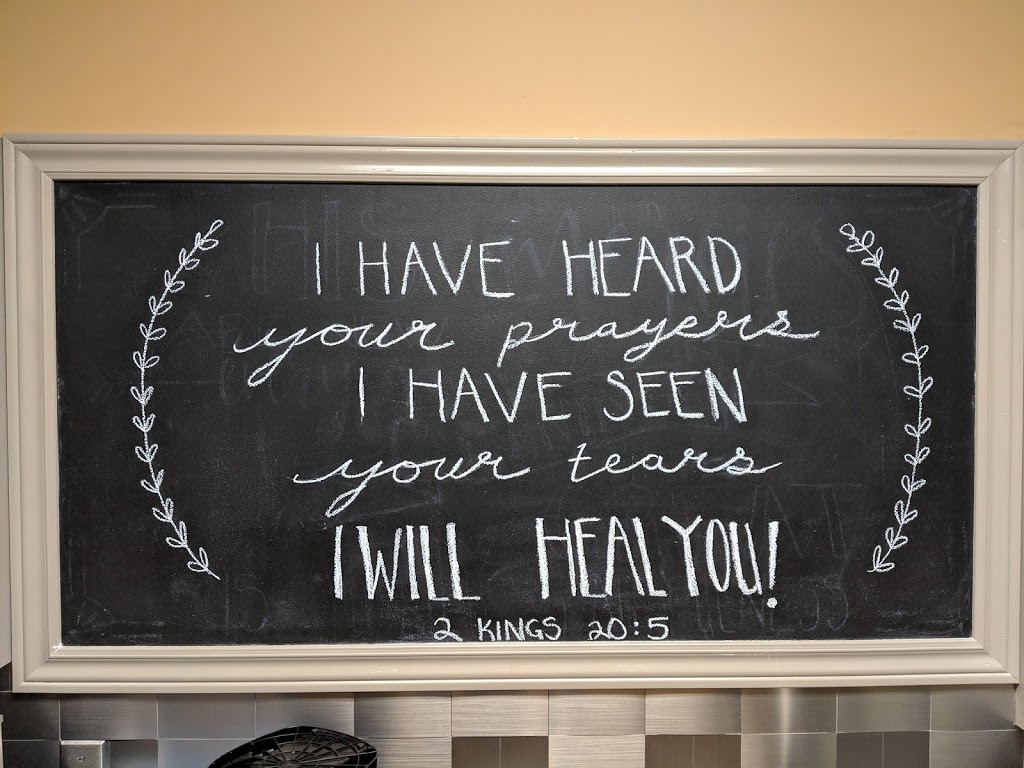 I HAVE HEARD
your prayers
I HAVE SEEN
your tears
I WILL HEAL YOU!
2 KINGS 20:5